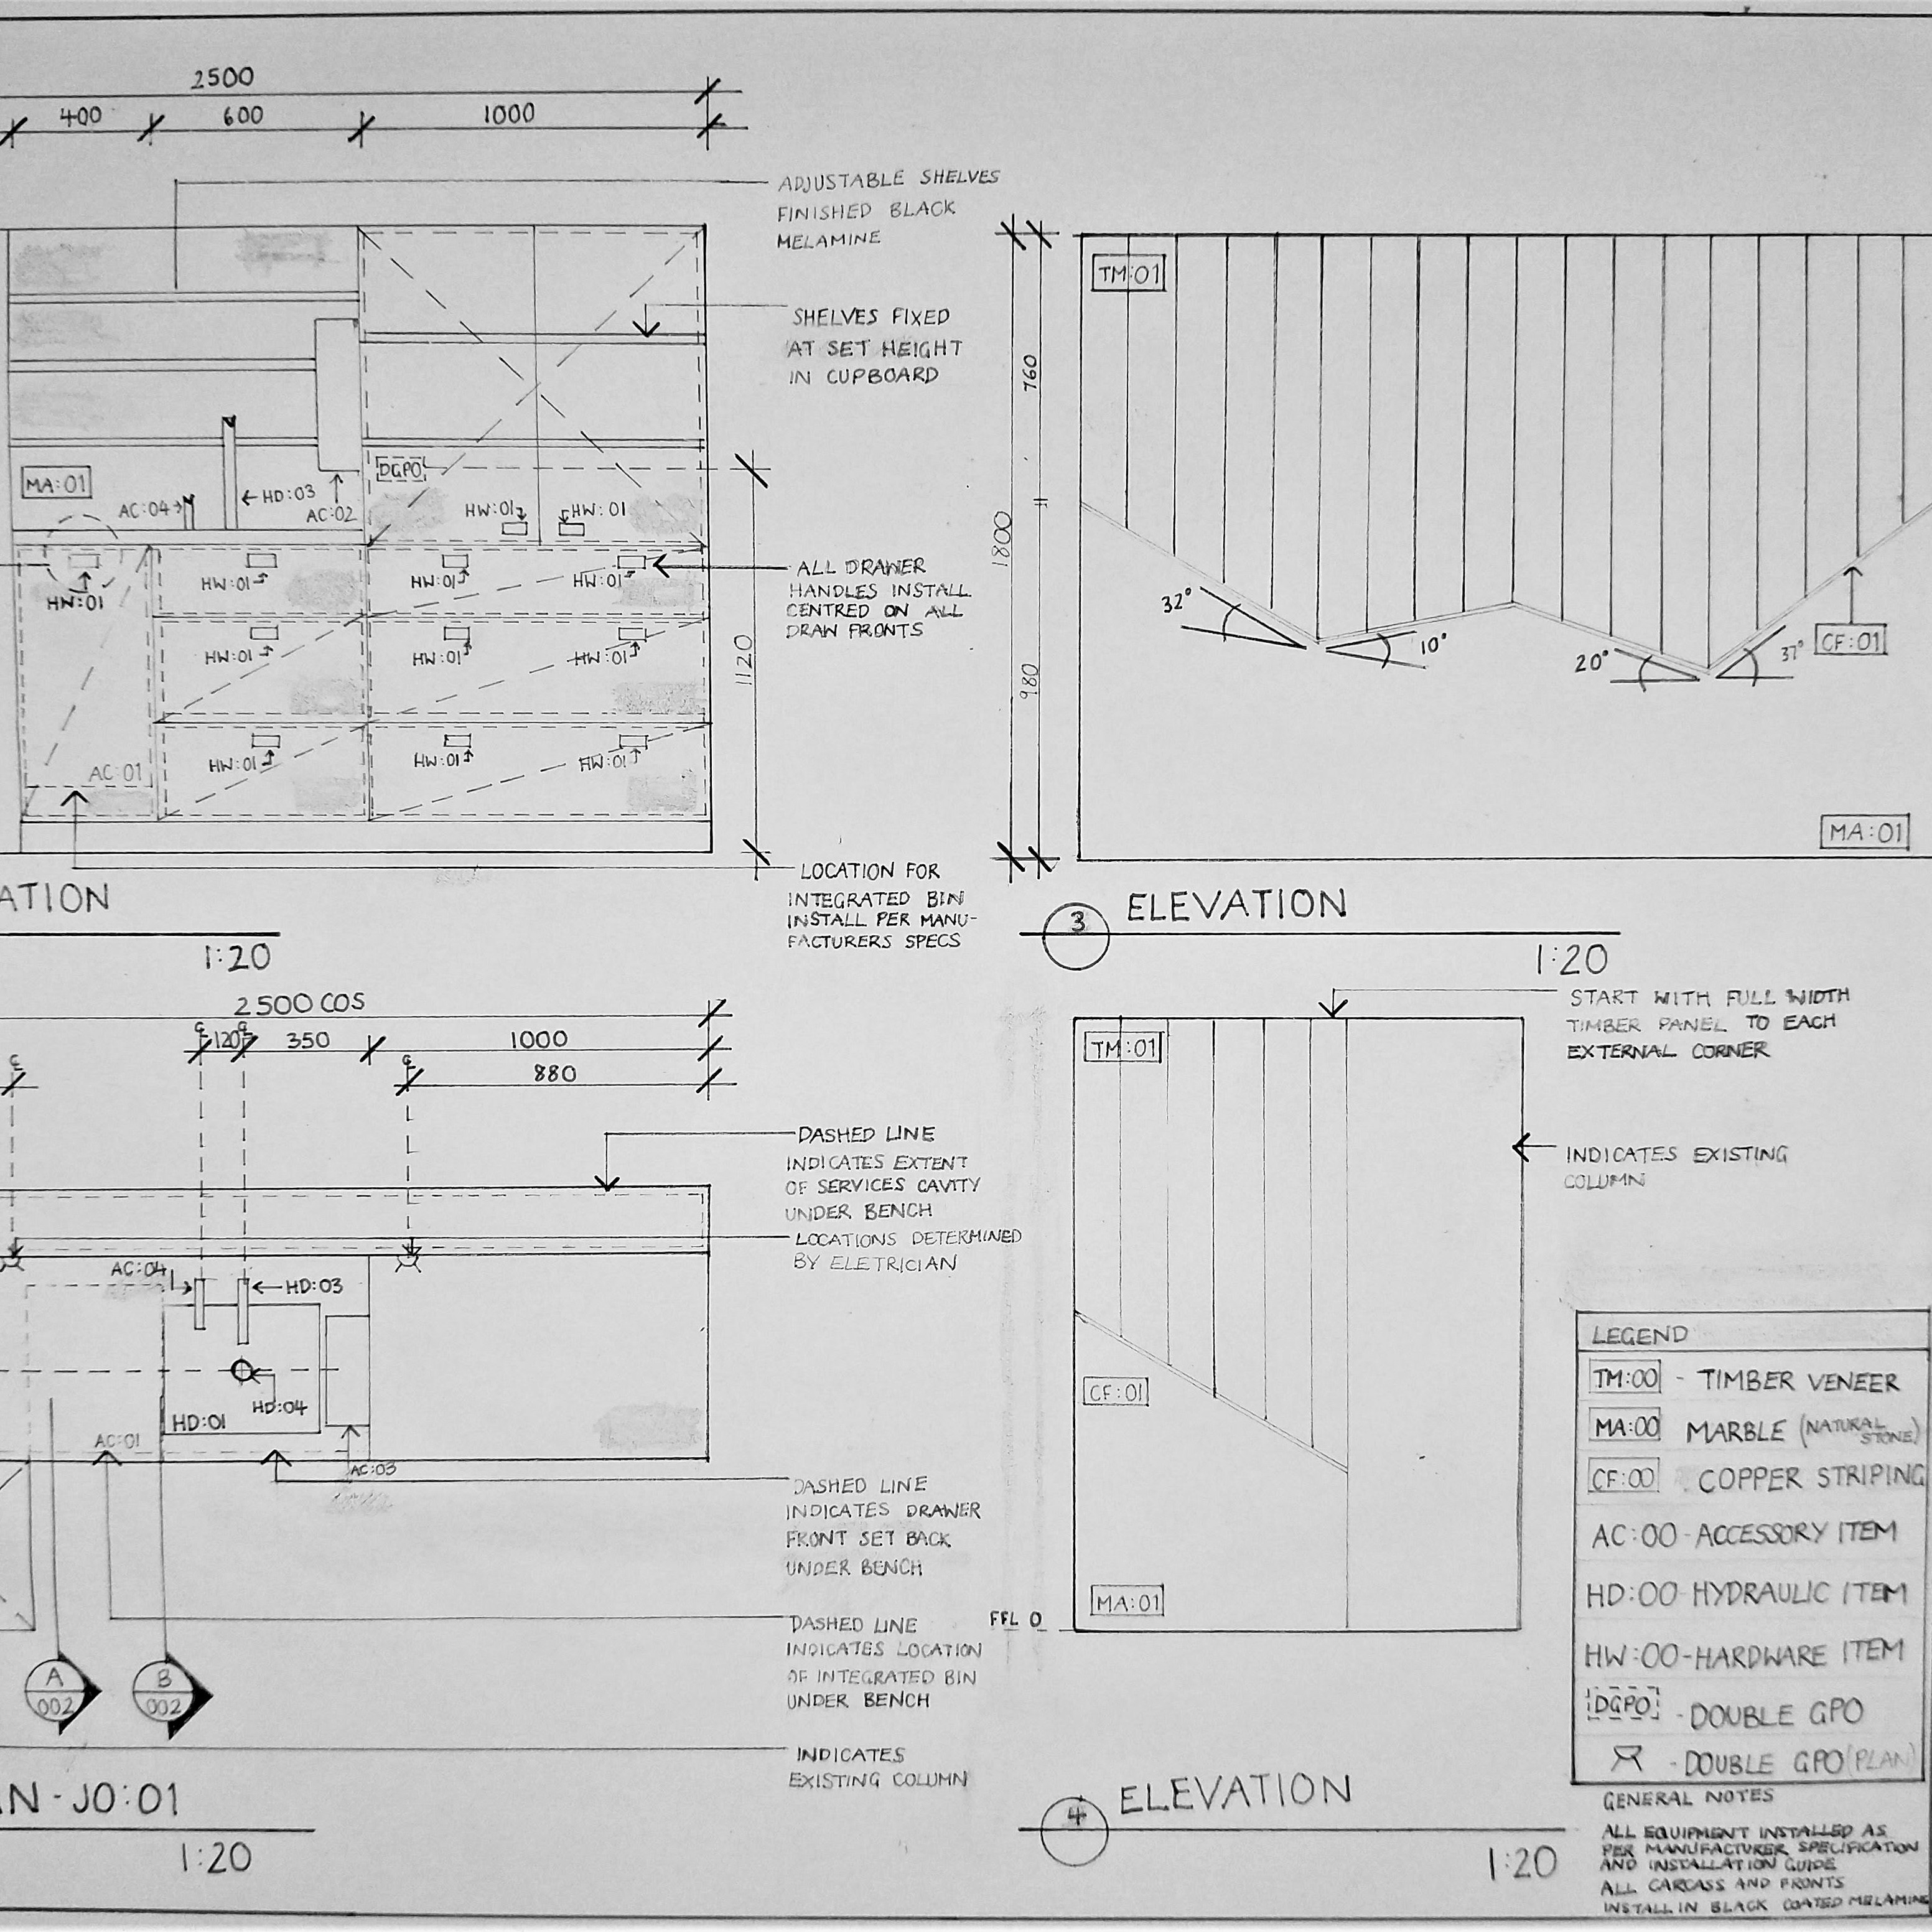 2500
400 600 1000
ADJUSTABLE SHELVES
FINISHED BLACK
MELAMINE
SHELVES FIXED
AT SET HEIGHT
IN CUPBOARD
MA:01
DGPO
AC:04
HD:03
AC:02
HW:01 HW:01
HW:01 HW:01 HW:01 HW:01
HW:01 HW:01 HW:01
HW:01 HW:01 HW:01
AC:01
1120
ALL DRAWER
HANDLES INSTALL
CENTRED ON ALL
DRAW FRONTS
LOCATION FOR
INTEGRATED BIN
INSTALL PER MANU-
FACTURERS SPECS
ATION
1:20
TM:01
760
1800
980
32°
10°
20°
37°
CF:01
MA:01
3 ELEVATION
1:20
2500 COS
120 350 1000
880
DASHED LINE
INDICATES EXTENT
OF SERVICES CAVITY
UNDER BENCH
LOCATIONS DETERMINED
BY ELETRICIAN
AC:04
HD:03
HD:04
HD:01
AC:01
AC:03
DASHED LINE
INDICATES DRAWER
FRONT SET BACK
UNDER BENCH
DASHED LINE
INDICATES LOCATION
OF INTEGRATED BIN
UNDER BENCH
A
002
B
002
INDICATES
EXISTING COLUMN
AN - JO:01
1:20
START WITH FULL WIDTH
TIMBER PANEL TO EACH
EXTERNAL CORNER
TM:01
INDICATES EXISTING
COLUMN
CF:01
MA:01
FFL 0
4 ELEVATION
1:20
LEGEND
TM:00 - TIMBER VENEER
MA:00 MARBLE (NATURAL
STONE)
CF:00 COPPER STRIPING
AC:00 - ACCESSORY ITEM
HD:00 HYDRAULIC ITEM
HW:00 - HARDWARE ITEM
DGPO - DOUBLE GPO
- DOUBLE GPO (PLAN)
GENERAL NOTES
ALL EQUIPMENT INSTALLED AS
PER MANUFACTURER SPECIFICATION
AND INSTALLATION GUIDE
ALL CARCASS AND FRONTS
INSTALL IN BLACK COATED MELAMINE